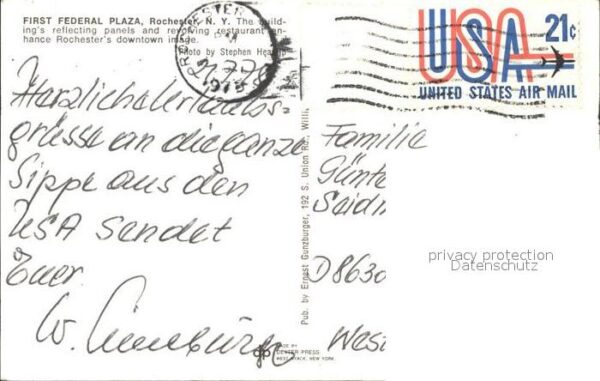 FIRST FEDERAL PLAZA, Rochester, N. Y. The build-
ing's reflecting panels and revolving restaurant en-
hance Rochester's downtown image.
Photo by Stephen
ROCHESTER
1973
USA 21c
UNITED STATES AIR MAIL
Herzliche Urlaubs-
grüsse an die ganze
Sippe aus den
USA sendet
Euer
W.
Pub. by Ernest Gunzburger, 192 S. Union Rd., Willi
MADE BY
DEXTER PRESS
WEST NYACK, NEW YORK
Familie
Günte
Seidn
D8630
West
privacy protection
Datenschutz